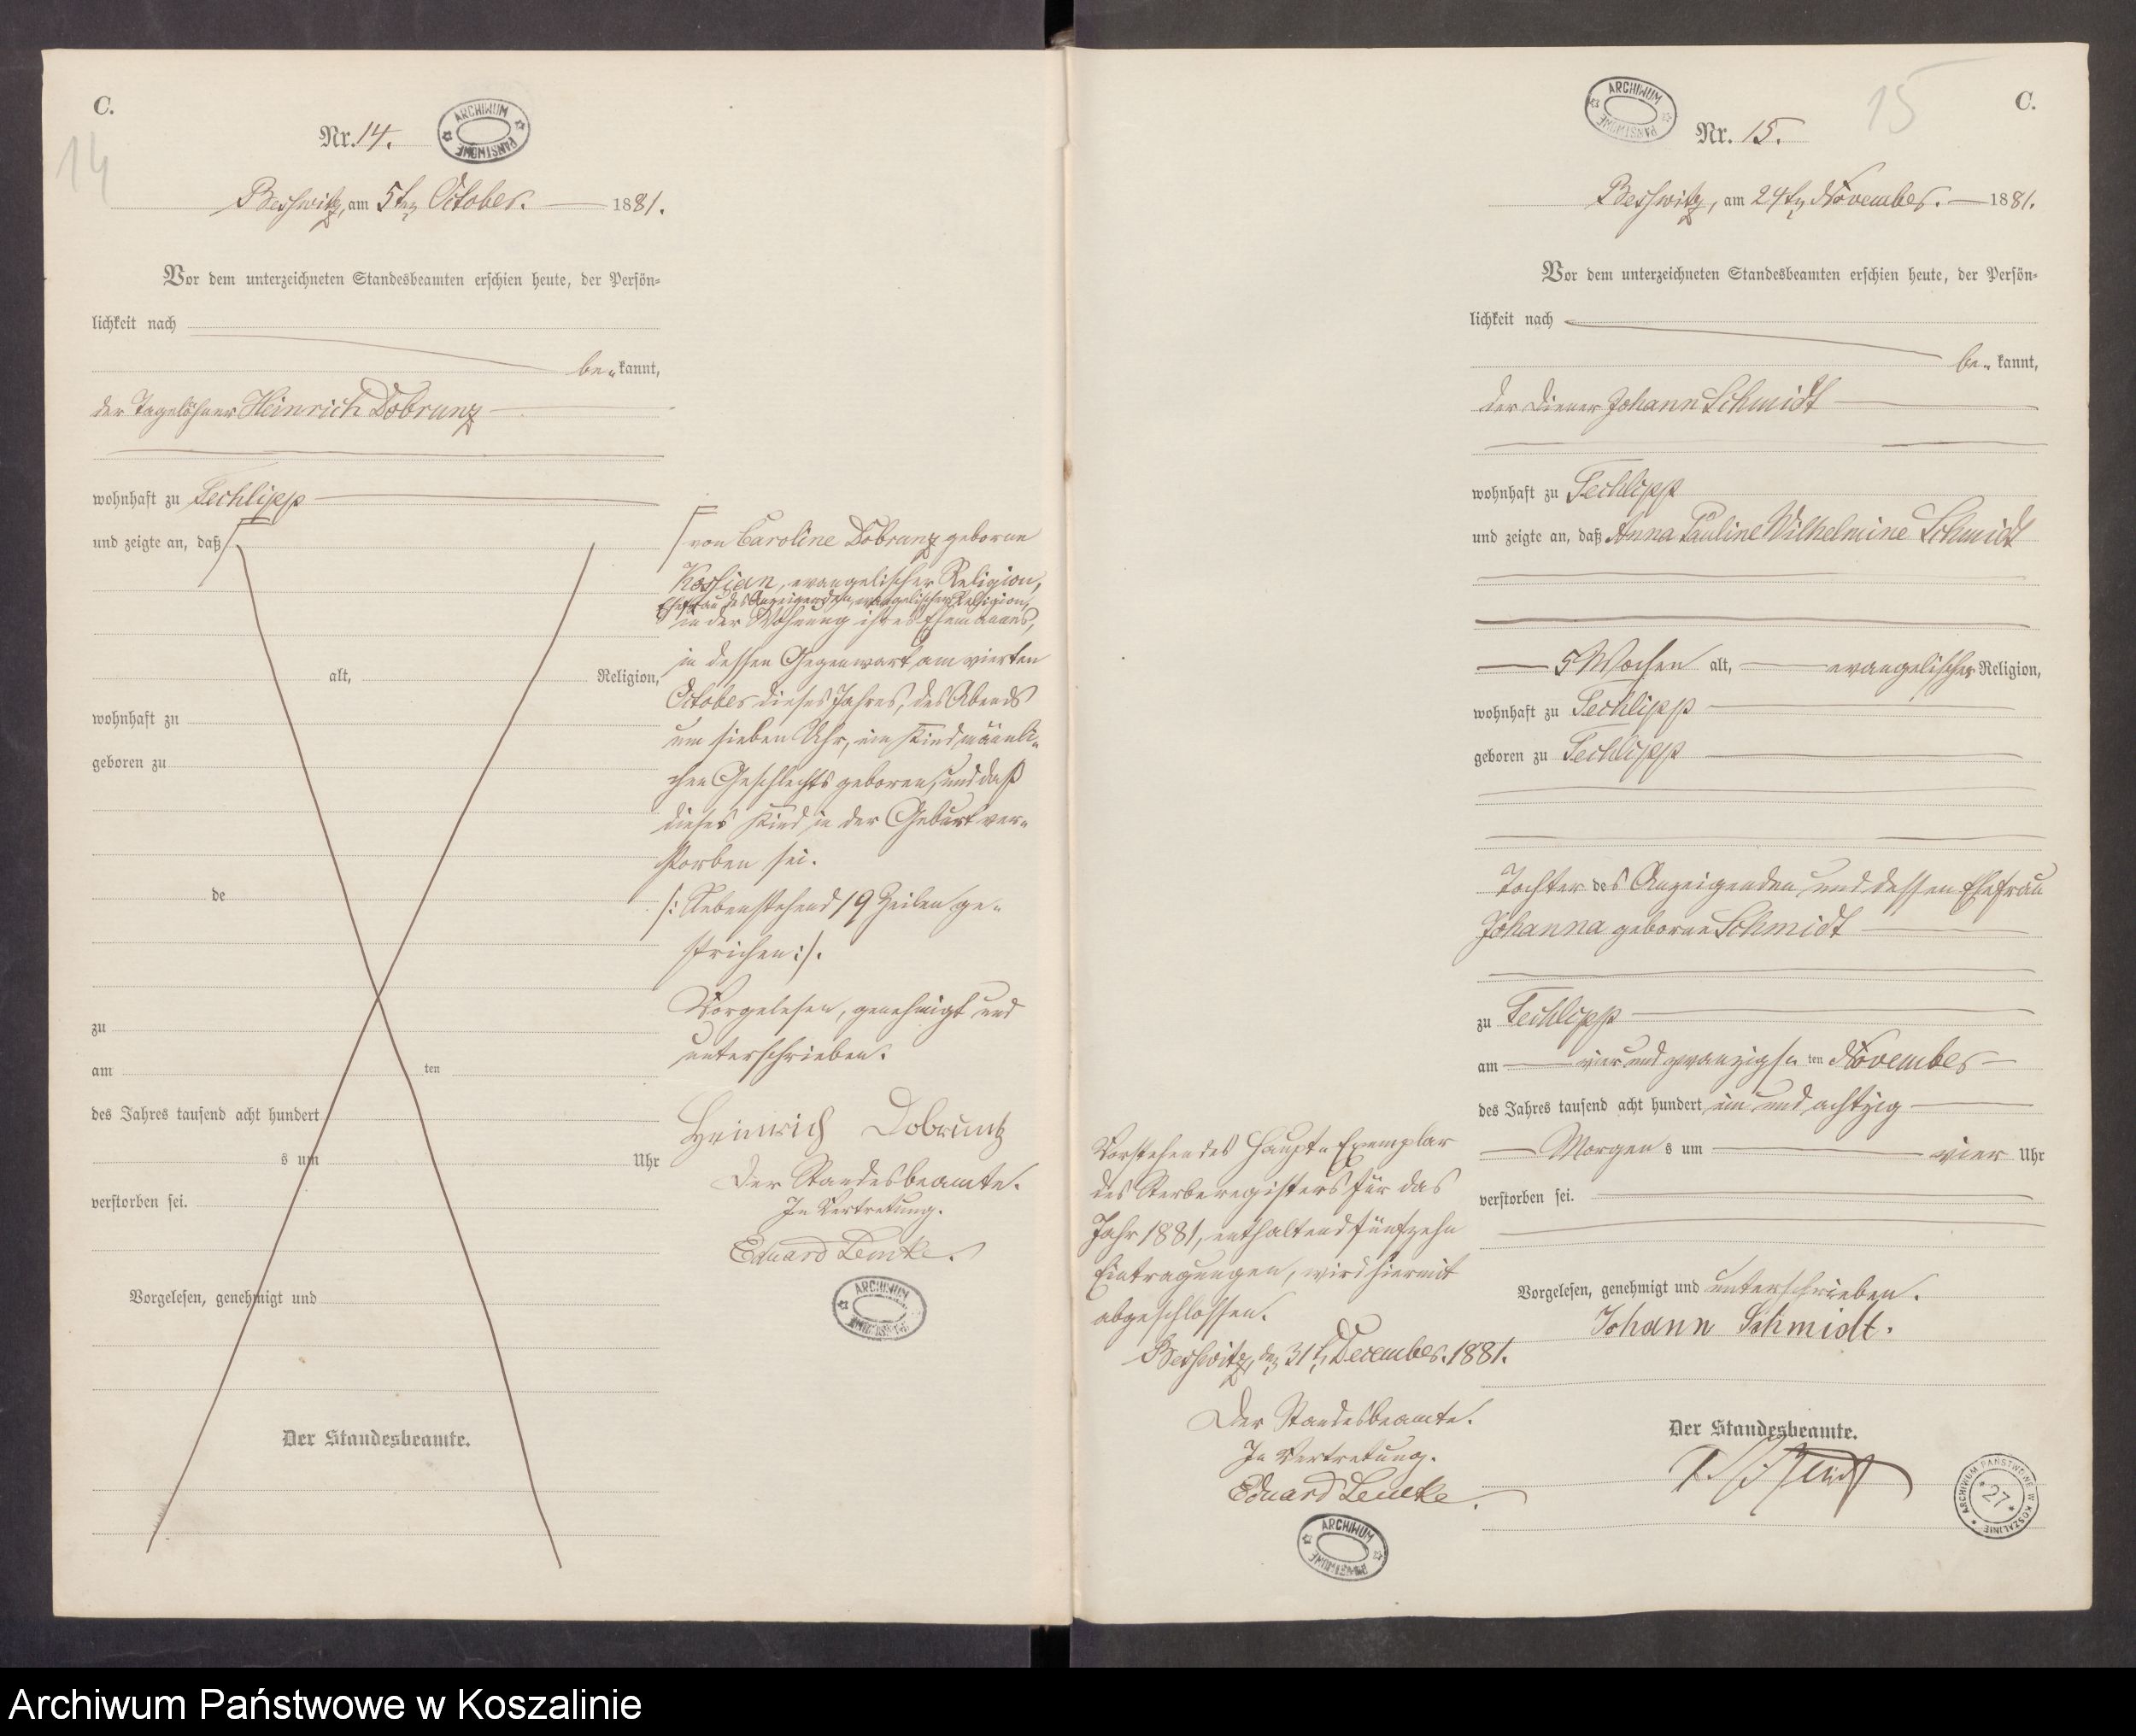 C.
14
Nr. 14.
ARCHIWUM PAŃSTWOWE
Beßwitz, am 5ten October. 1881.
Vor dem unterzeichneten Standesbeamten erschien heute, der Persön-
lichkeit nach
be- kannt,
der Tagelöhner Heinrich Dobrunz
wohnhaft zu Techlipp
und zeigte an, daß
alt, Religion,
wohnhaft zu
geboren zu
de
zu
am ten
des Jahres tausend acht hundert
s um Uhr
verstorben sei.
Vorgelesen, genehmigt und
Der Standesbeamte.
von Caroline Dobrunz geborne
evangelischer Religion,
Ehefrau des Anzeigenden, evangelischer Religion,
in der Wohnung ihres Ehemannes,
in dessen Gegenwart am vierten
October dieses Jahres, des Abends
um sieben Uhr, ein Kind männli-
chen Geschlechts geboren, und daß
dieses Kind in der Geburt ver-
storben sei.
/: Nebenstehend 19 Zeilen ge-
strichen :/.
Vorgelesen, genehmigt und
unterschrieben.
Heinrich Dobruntz
Der Standesbeamte.
In Vertretung.
Eduard Lemke.
ARCHIWUM PAŃSTWOWE
C.
15
ARCHIWUM PAŃSTWOWE
Nr. 15.
Beßwitz, am 24ten November. 1881.
Vor dem unterzeichneten Standesbeamten erschien heute, der Persön-
lichkeit nach
be- kannt,
der Diener Johann Schmidt
wohnhaft zu Techlipp
und zeigte an, daß Anna Pauline Wilhelmine Schmidt
5 Wochen alt, evangelischer Religion,
wohnhaft zu Techlipp
geboren zu Techlipp
Tochter des Anzeigenden und dessen Ehefrau
Johanna geborne Schmidt
zu Techlipp
am vier und zwanzigsten ten November
des Jahres tausend acht hundert ein und achtzig
Morgens um vier Uhr
verstorben sei.
Vorgelesen, genehmigt und unterschrieben.
Johann Schmidt.
Der Standesbeamte.
ARCHIWUM PAŃSTWOWE W KOSZALINIE
27
Vorstehendes Haupt-Exemplar
des Sterberegisters für das
Jahr 1881, enthaltend fünfzehn
Eintragungen, wird hiermit
abgeschlossen.
Beßwitz, den 31ten December. 1881.
Der Standesbeamte.
In Vertretung.
Eduard Lemke.
ARCHIWUM PAŃSTWOWE
Archiwum Państwowe w Koszalinie